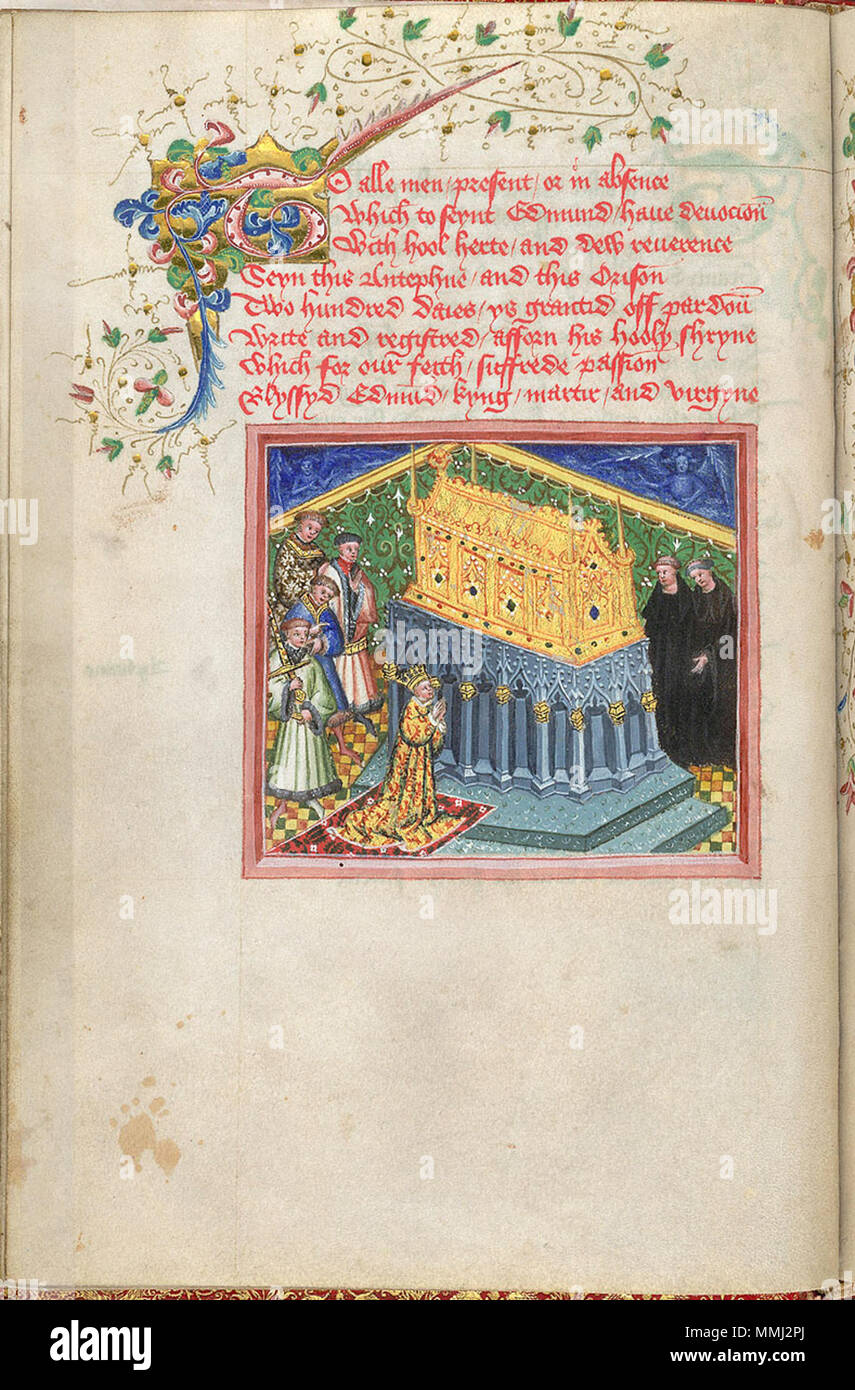 To alle men / present / or in absence
Which to seynt Edmund / haue deuocioun
With hool herte / and dew reuerence
Seyn this Antephne / and this Orison
Two hundred daies / ys grantid off pardoun
Write and registred / afforn his hooly shryne
Which for our feith / suffrede passion
Blyssyd Edmund / kyng / martir / and virgyne
alamy
alamy
alamy
alamy
alamy
Image ID: MMJ2PJ
www.alamy.com